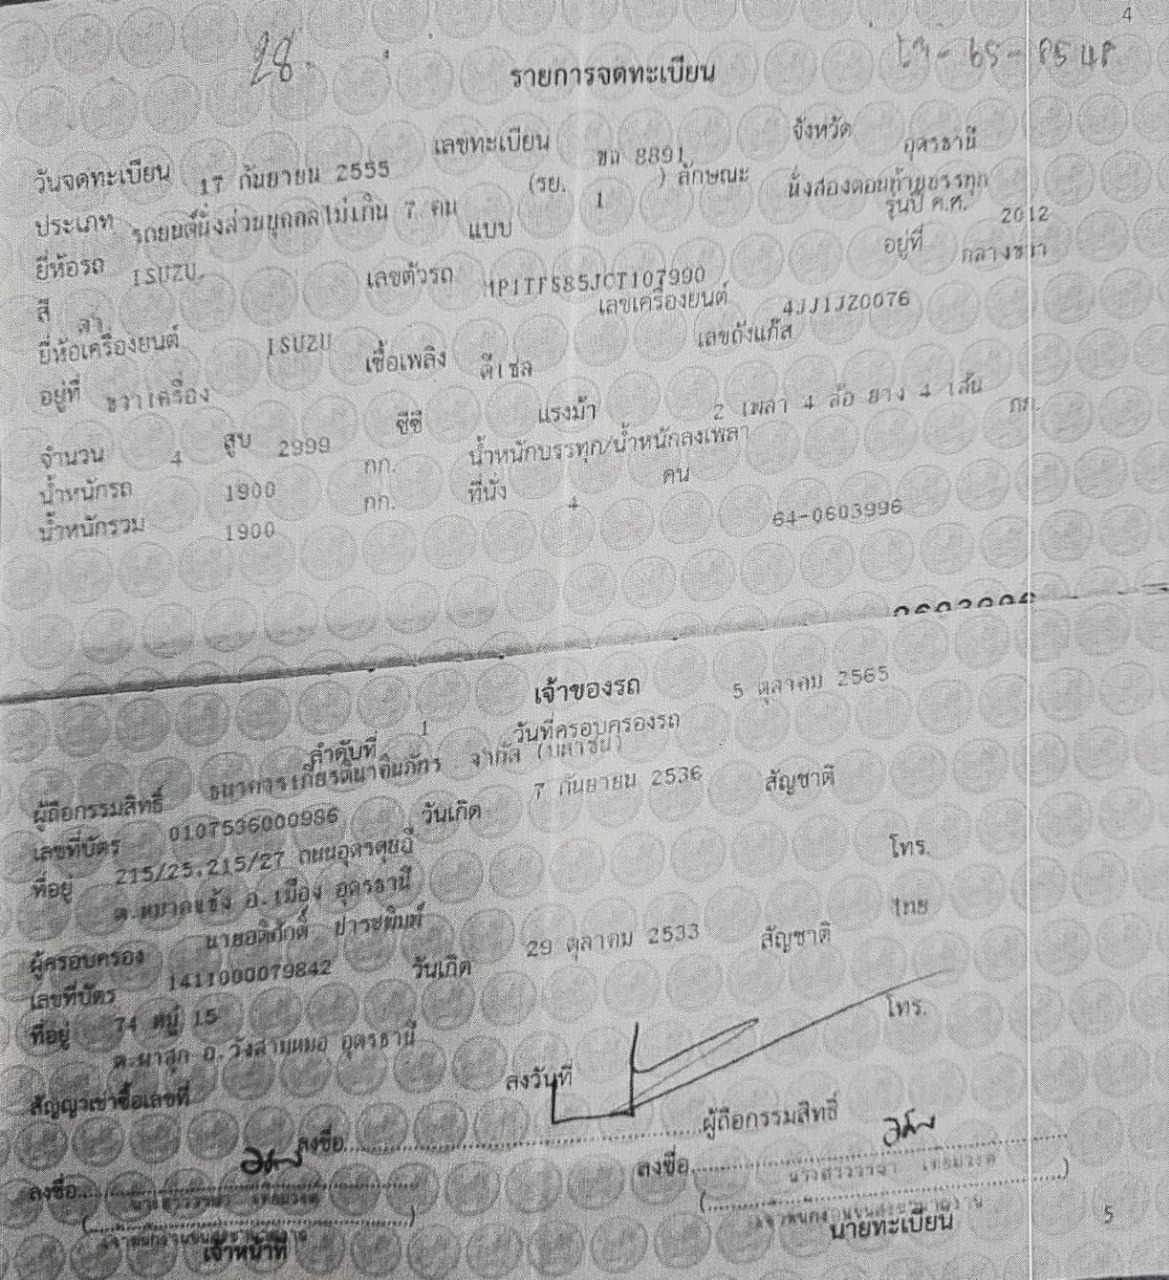 4
28.
รายการจดทะเบียน
วันจดทะเบียน 17 กันยายน 2555 เลขทะเบียน 8891 จังหวัด อุดรธานี
ประเภท รถยนต์นั่งส่วนบุคคลไม่เกิน 7 คน (รย. 1 ) ลักษณะ นั่งสองตอนท้ายบรรทุก
ยี่ห้อรถ ISUZU แบบ รุ่นปี ค.ศ. 2012
สี เลขตัวรถ MP1TFS85JCT107990 อยู่ที่ กลางขวา
ยี่ห้อเครื่องยนต์ ISUZU เลขเครื่องยนต์ 4JJ1JZ0076
อยู่ที่ ขวาเครื่อง เชื้อเพลิง ดีเซล เลขถังแก๊ส
จำนวน 4 สูบ 2999 ซีซี แรงม้า 2 เพลา 4 ล้อ ยาง 4 เส้น
น้ำหนักรถ 1900 กก. น้ำหนักบรรทุก/น้ำหนักลงเพลา กก.
น้ำหนักรวม 1900 กก. ที่นั่ง 4 คน
64-0603996
เจ้าของรถ
ลำดับที่ 1 วันที่ครอบครองรถ 5 ตุลาคม 2565
ผู้ถือกรรมสิทธิ์ ธนาคารเกียรตินาคินภัทร จำกัด (มหาชน)
เลขที่บัตร 0107536000986 วันเกิด 7 กันยายน 2536 สัญชาติ
ที่อยู่ 215/25,215/27 ถนนอุดรดุษฎี
ต.หมากแข้ง อ.เมือง อุดรธานี โทร.
ผู้ครอบครอง นายอดิศักดิ์
เลขที่บัตร 1411000079842 วันเกิด 29 ตุลาคม 2533 สัญชาติ ไทย
ที่อยู่ 74 หมู่ 15
ต.ผาสุก อ.วังสามหมอ อุดรธานี โทร.
สัญญาเช่าซื้อเลขที่ ลงวันที่
ลงชื่อ ผู้ถือกรรมสิทธิ์
ลงชื่อ ลงชื่อ
เจ้าหน้าที่ นายทะเบียน
5